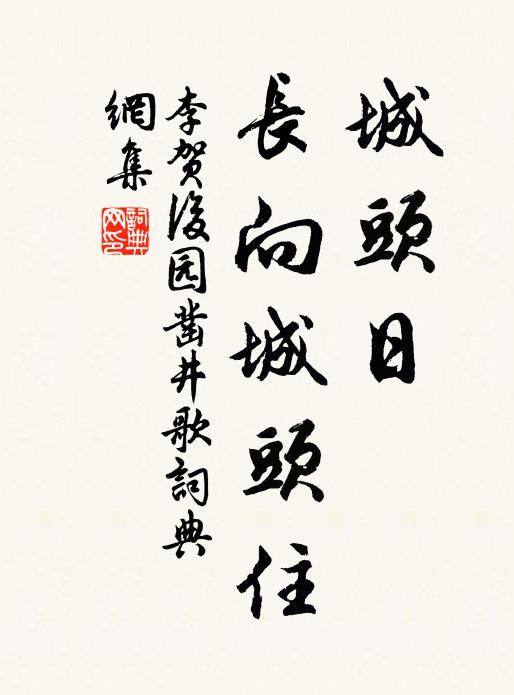 城頭日
長向城頭住
李賀後园凿井歌詞典
網集
詞典
网印